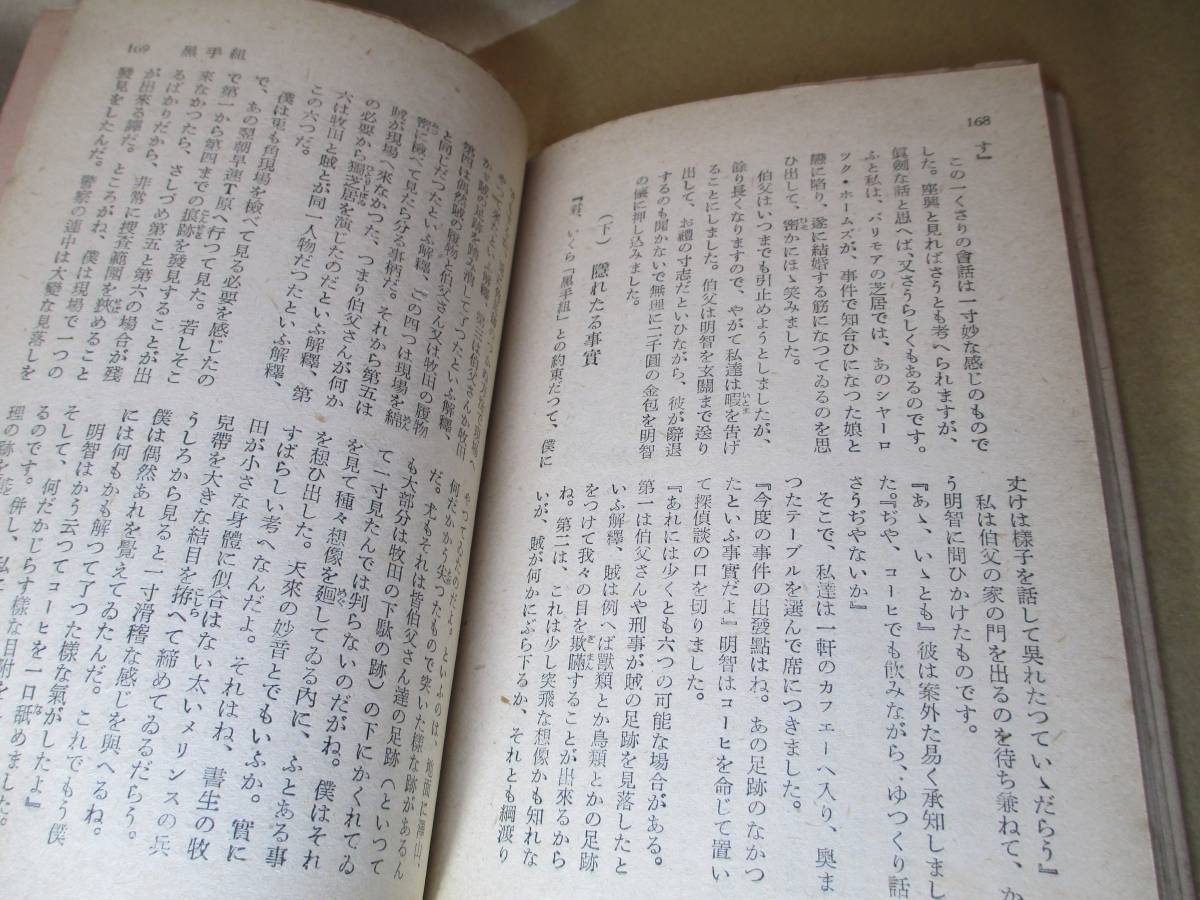 168
す』
　この一くさりの會話は一寸妙な感じのもので
した。座興と見ればさうとも考へられますが、
眞劍な話と思へば、又さうらしくもあるのです。
ふと私は、バリモアの芝居では、あのシャーロ
ック・ホームズが、事件で知合ひになつた娘と
戀に陷り、遂に結婚する筋になつてゐるのを思
ひ出して、密かにほゝ笑みました。
　伯父はいつまでも引止めようとしましたが、
餘り長くなりますので、やがて私達は暇を告げ
ることにしました。伯父は明智を玄關まで送り
出して、お禮の寸志だといひながら、彼が辭退
するのも聞かないで無理に二千圓の金包を明智
の懷に押し込みました。
（下）　隱れたる事實
『君、いくら「黑手組」との約束だつて、僕に
丈けは樣子を話して吳れたつていゝだらう』
　私は伯父の家の門を出るのを待ち兼ねて、か
う明智に問ひかけたものです。
『あゝ、いゝとも』彼は案外た易く承知しまし
た。『ぢや、コーヒでも飮みながら、ゆつくり話
さうぢやないか』
　そこで、私達は一軒のカフェーへ入り、奧ま
つたテーブルを選んで席につきました。
『今度の事件の出發點はね。あの足跡のなかつ
たといふ事實だよ』明智はコーヒを命じて置い
て探偵談の口を切りました。
『あれには少くとも六つの可能な場合がある。
第一は伯父さんや刑事が賊の足跡を見落したと
いふ解釋、賊は例へば獸類とか鳥類とかの足跡
をつけて我々の目を欺瞞することが出來るから
ね。第二は、これは少し突飛な想像かも知れな
いが、賊が何かにぶら下るか、それとも綱渡り
169　黑手組
第四は偶然賊の履物と伯父さん又は牧田の履物
と同じだつたといふ解釋、この四つは現場を綿
密に檢べて見たら分る事柄だ。それから第五は
賊が現場へ來なかつた、つまり伯父さんが何か
の必要から獨芝居を演じたのだといふ解釋、第
六は牧田と賊とが同一人物だつたといふ解釋、
この六つだ。
　僕は兎も角現場を檢べて見る必要を感じたの
で、あの翌朝早速Ｔ原へ行つて見た。若しそこ
で第一から第四までの痕跡を發見することが出
來なかつたら、さしづめ第五と第六の場合が殘
るばかりだから、非常に搜査範圍を狹めること
が出來る譯だ。ところがね、僕は現場で一つの
發見をしたんだ。警察の連中は大變な見落しを
やつてゐたのだよ。といふのは、地面に澤山、
何だかかう尖つたもので突いた樣な跡があるん
だ。尤もそれは皆伯父さん達の足跡（といつて
も大部分は牧田の下駄の跡）の下にかくれてゐ
て一寸見たんでは判らないのだがね。僕はそれ
を見て種々想像を廻してゐる内に、ふとある事
を想ひ出した。天來の妙音とでもいふか。實に
すばらしい考へなんだよ。それはね、書生の牧
田が小さな身體に似合はない太いメリンスの兵
兒帶を大きな結目を拵へて締めてゐるだらう。
うしろから見ると一寸滑稽な感じを與へるね。
僕は偶然あれを覺えてゐたんだ。これでもう僕
には何もかも解つて了つた樣な氣がしたよ』
　明智はかう云つてコーヒを一口舐めました。
そして、何だかじらす樣な目附を
るのです。併し、私に
理の跡を